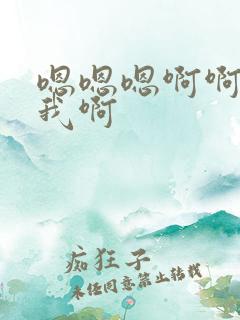 嗯嗯嗯啊啊
我啊
痴狂子
未经同意禁止转载